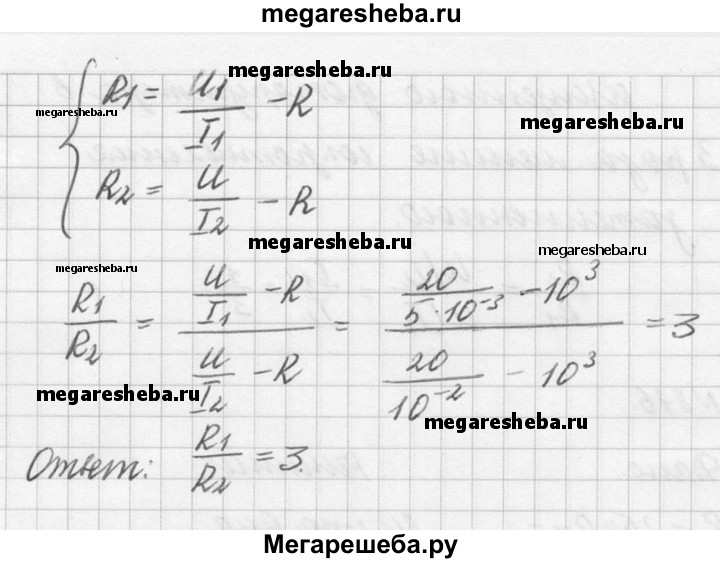 megaresheba.ru
R1 = U1/I1 - R
megaresheba.ru
megaresheba.ru
megaresheba.ru
R2 = U/I2 - R
megaresheba.ru
megaresheba.ru
megaresheba.ru
R1/R2 = (U/I1 - R)/(U/I2 - R) = (20/(5·10⁻³) - 10³)/(20/10⁻² - 10³) = 3
megaresheba.ru
megaresheba.ru
Ответ: R1/R2 = 3.
Мегарешеба.ру